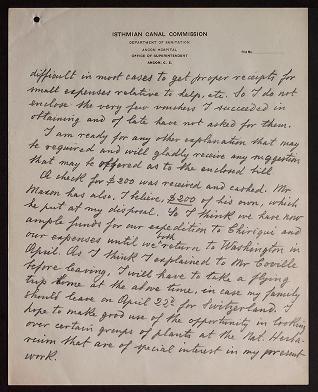 ISTHMIAN CANAL COMMISSION
DEPARTMENT OF SANITATION
ANCON HOSPITAL
OFFICE OF SUPERINTENDENT
ANCON, C. Z.
File No.
difficult in most cases to get proper receipts for
small expenses relative to help, etc. So I do not
enclose the very few vouchers I succeeded in
obtaining and of late have not asked for them.
I am ready for any other explanation that may
be required and will gladly receive any suggestions
that may be offered as to the enclosed bill
A check for $200 was received and cashed. Mr
Maxon has also, I believe, $200 of his own, which
he put at my disposal. So I think we have now
ample funds for our expedition to Chiriqui and
our expenses until we both return to Washington in
April. As I think I explained to Mr Coville
before leaving, I will have to take a flying
trip home at the above time, in case my family
should leave on April 22d for Switzerland. I
hope to make good use of the opportunity in looking
over certain groups of plants at the Nat. Herba-
rium that are of special interest in my present
work.